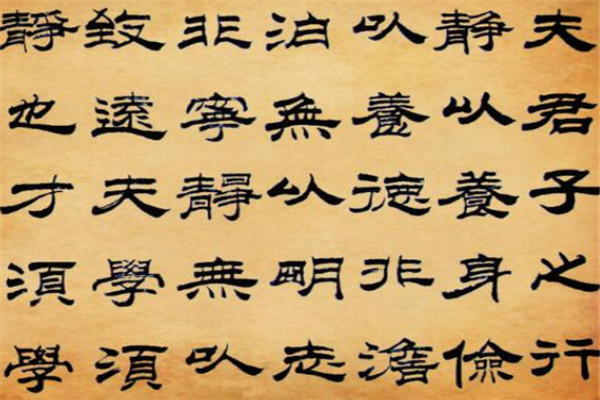 夫君子之行
靜以養身儉
以養德非澹
泊無以明志
非寧靜無以
致遠夫學須
靜也才須學